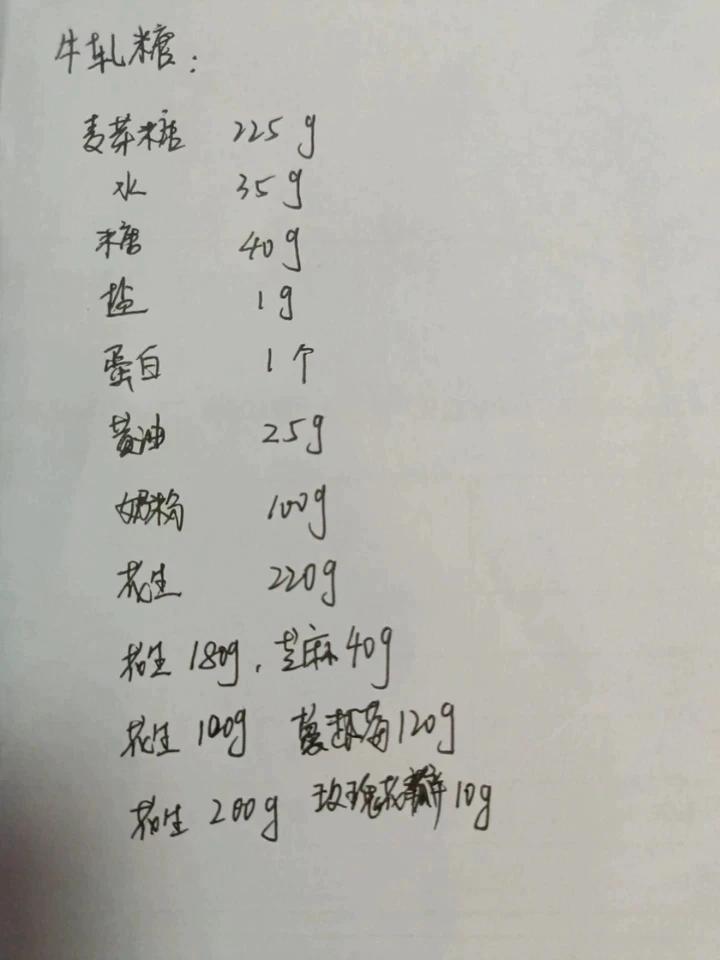 牛轧糖：
麦芽糖 225g
水 35g
糖 40g
盐 1g
蛋白 1个
黄油 25g
奶粉 100g
花生 220g
花生 180g，芝麻 40g
花生 100g 蔓越莓 120g
花生 200g 玫瑰花瓣 10g